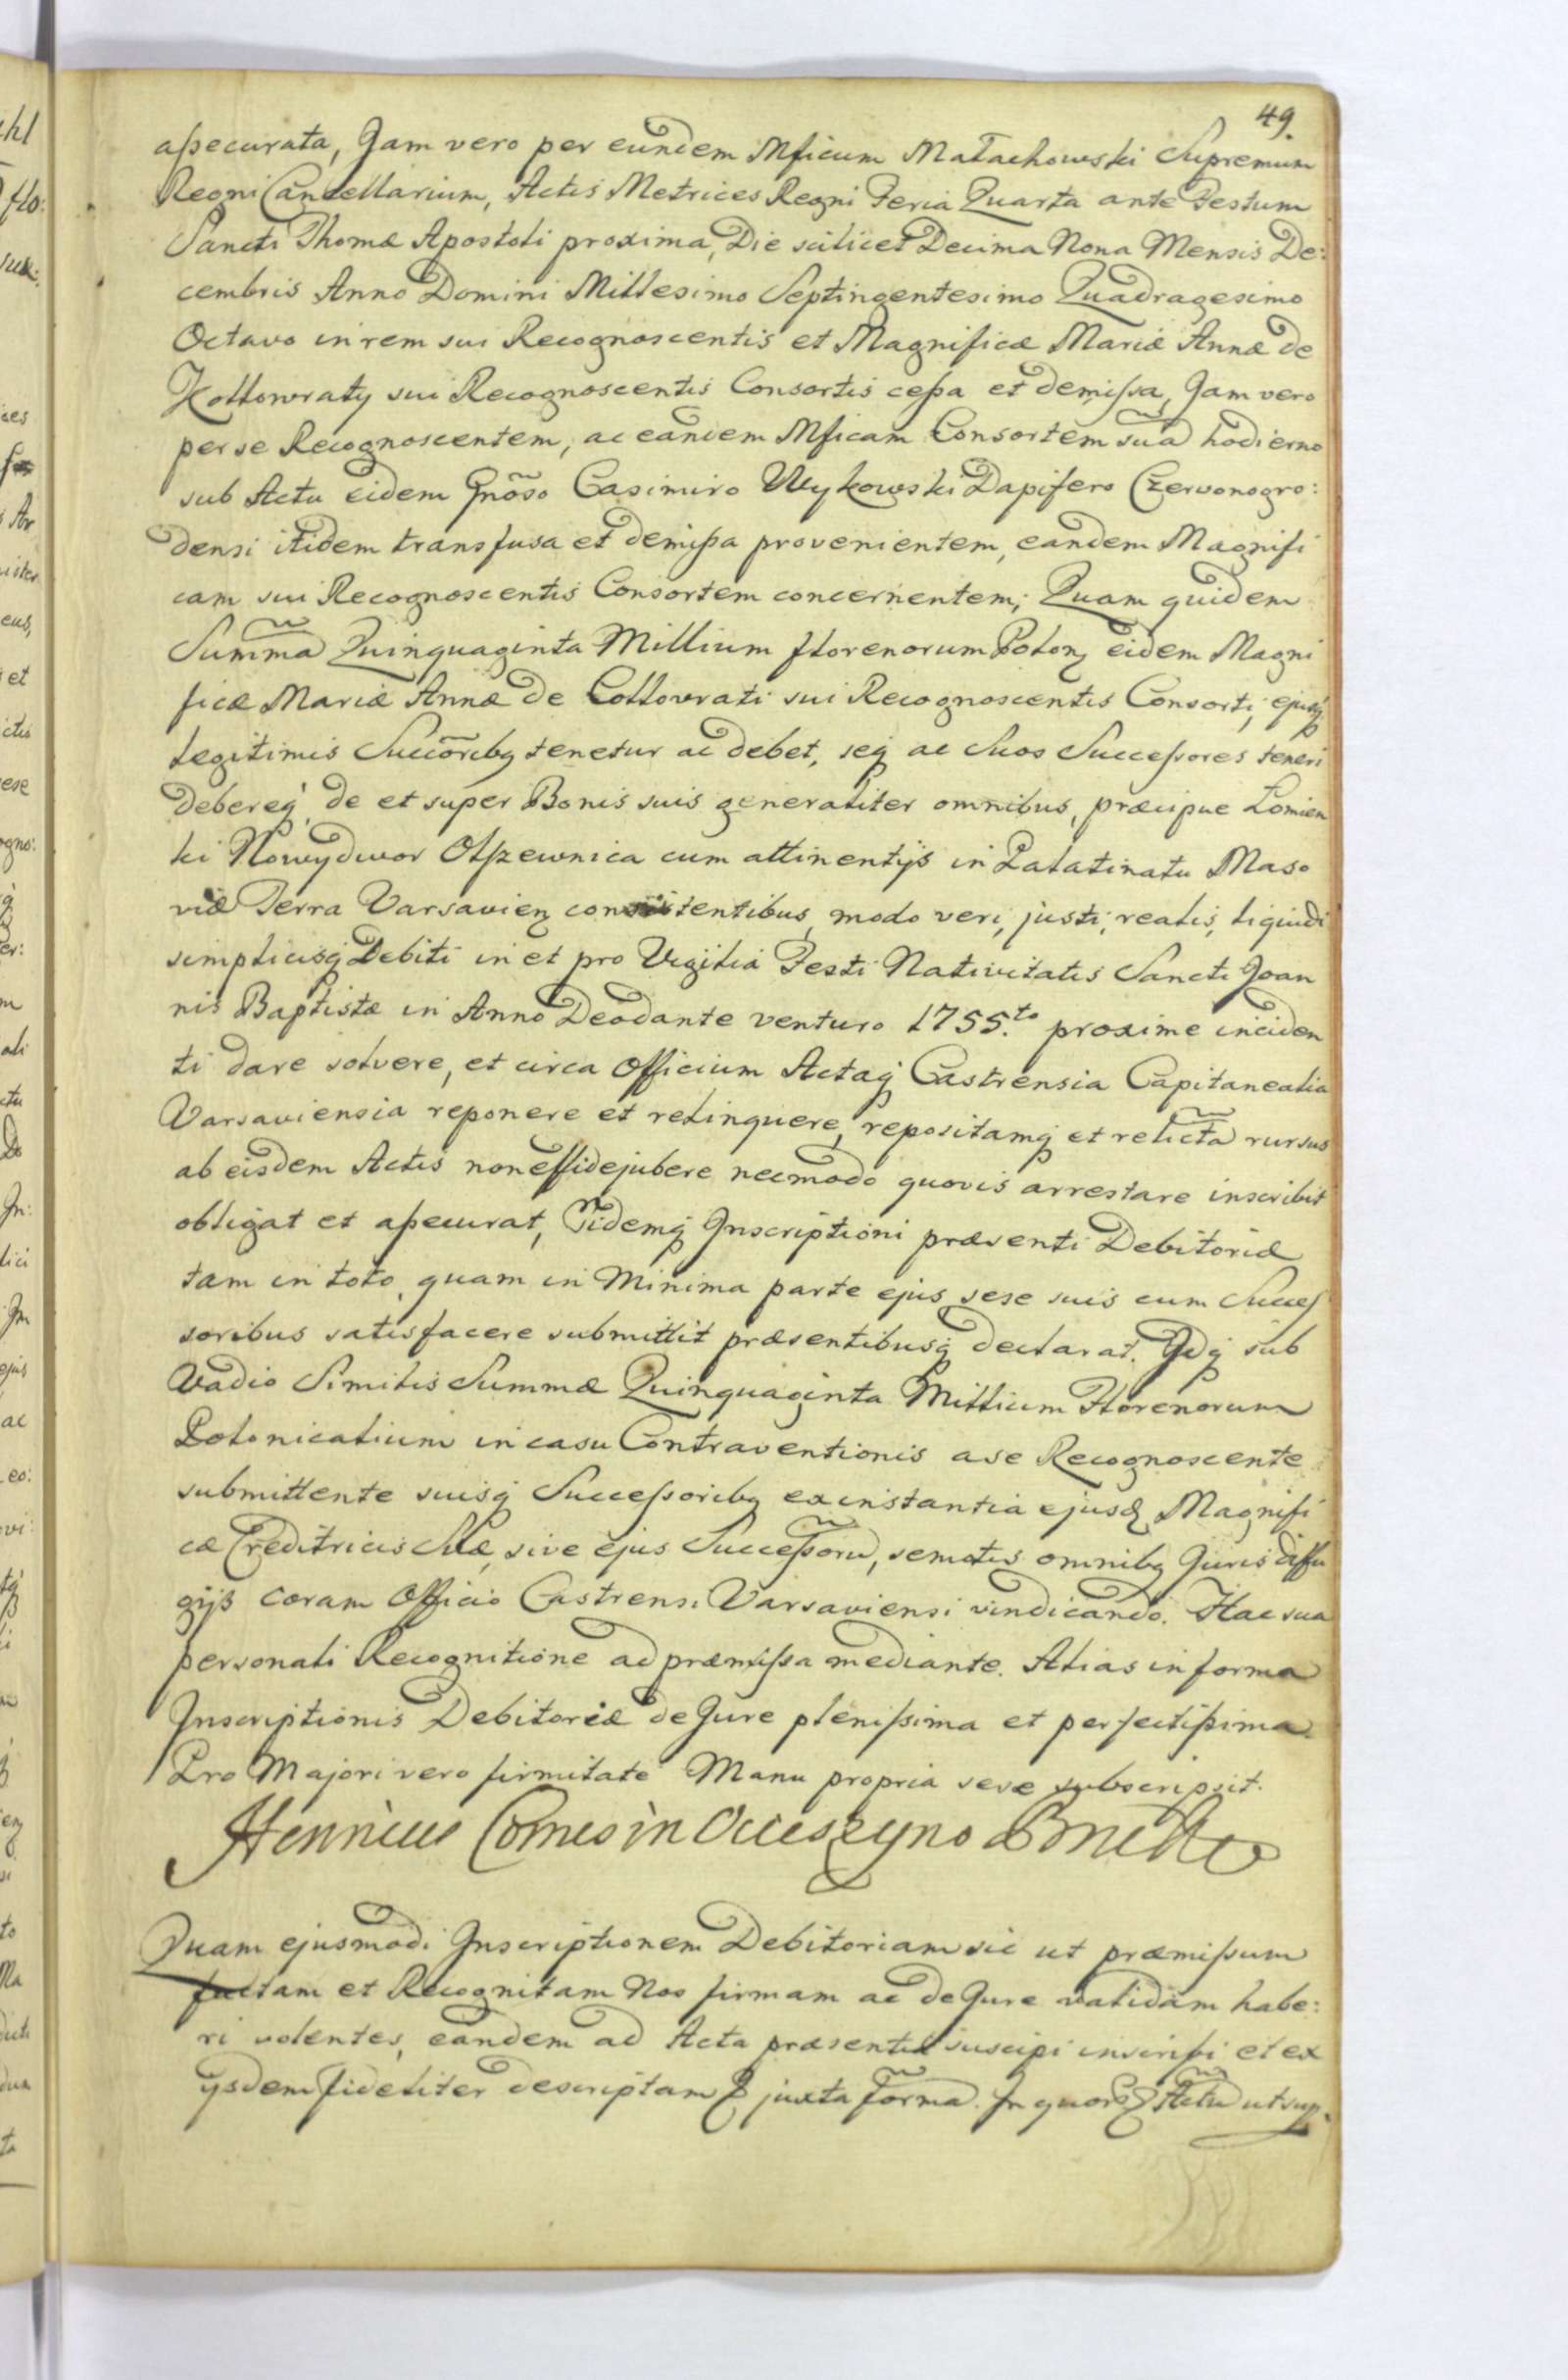 49.
aßecurata, Jam vero per eundem Mficum Małachowski Supremum
Regni Cancellarium, Actis Metrices Regni Feria Quarta ante Festum
Sancti Thomæ Apostoli proxima, Die scilicet Decima Nona Mensis De:
cembris Anno Domini Millesimo Septingentesimo Quadragesimo
Octavo in rem sui Recognoscentis et Magnificæ Mariæ Annæ de
Kollowraty sui Recognoscentis Consortis ceßa et demißa, Jam vero
per se Recognoscentem, ac eandem Mficam Consortem suã hodierno
sub Actu eidem Gnõso Casimiro Wykowski Dapifero Czervonogro:
densi itidem transfusa et demißa provenientem, eandem Magnifi
cam sui Recognoscentis Consortem concernentem; Quam quidem
Sum̃ma Quinquaginta Millium florenorum Polonz eidem Magni
ficæ Mariæ Annæ de Collovrati sui Recognoscentis Consorti, ejusq
legitimis Succõribg tenetur ac debet, seq ac Suos Succeßores teneri
Debereq, de et super Bonis suis generaliter omnibus, præcipue Łomien
ki Nowydwor Olszewnica cum attinentijs in Palatinatu Maso
viæ Terra Varsavienz consistentibus, modo veri, justi, realis, liquidi
simplicisq Debiti in et pro Vigilia Festi Nativitatis Sancti Joan
nis Baptistæ in Anno Deodante venturo 1755.to proxime inciden
ti dare solvere, et circa Officium Actaq Castrensia Capitanealia
Varsaviensia reponere et relinquere, repositamq et relictã rursus
ab eisdem Actis non effidejubere necmodo quovis arrestare inscribit
obligat et aßecurat, Eidemq Inscriptioni præsenti Debitoriæ
tam in toto, quam in Minima parte ejus sese suis cum Succeß
soribus satisfacere submittit præsentibusq declarat. Idq sub
Vadio Similis Summæ Quinquaginta Millium Florenorum
Polonicalium in casu Contraventionis a se Recognoscente
submittente suisq Succeßoribg ex instantia ejusd Magnifi
cæ Creditricis Suæ, sive ejus Succeßorũ, semotis omnibg Juris diffu
gijs coram Officio Castrensi Varsaviensi vindicando. Hac sua
personali Recognitione ad præmißa mediante. Alias in forma
Inscriptionis Debitoriæ de Jure plenißima et perfectißima.
Pro Majori vero firmitate Manu propria sese subscripsit.
Henricus Comes in
Quam ejusmodi Inscriptionem Debitoriam sic ut præmißum
factam et Recognitam Nos firmam ac de Jure validam habe:
ri volentes, eandem ad Acta præsentia suscipi inscribi et ex
ijsdem fideliter descriptam juxta formã. In quorz Actu ut sup.